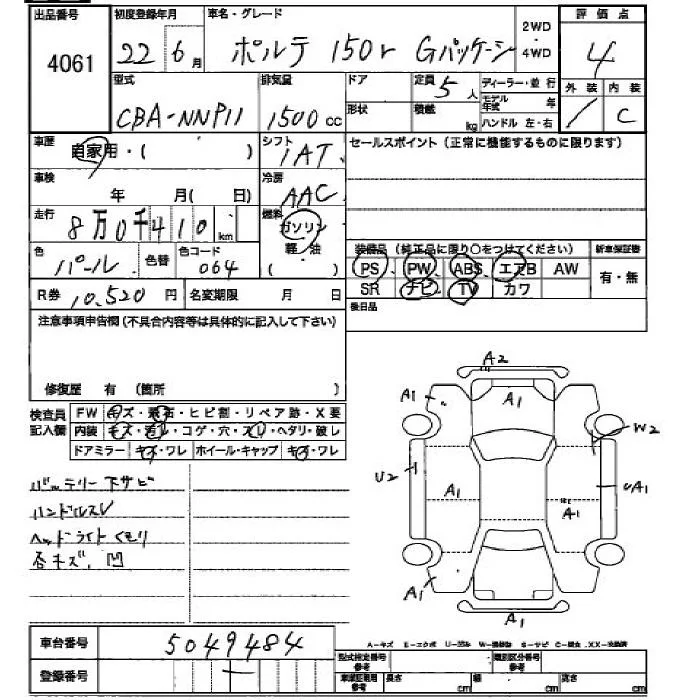 出品番号 初度登録年月 車名・グレード 2WD ・ 4WD 評価点
4061 22 6月 ポルテ 150r Gパッケージ 4
型式 排気量 ドア 定員 5人 ディーラー・並行 外装 内装
CBA-NNP11 1500cc 形状 積載 kg モデル年式 年 ハンドル 左・右 C
車歴 自家用・( ) シフト IAT セールスポイント(正常に機能するものに限ります)
車検 年 月( 日) 冷房 AAC
走行 8万0千410km 燃料 ガソリン 軽・油 ( )
色 パール 色替 色コード 064 装備品(純正品に限り○をつけてください) 新車保証書
PS PW ABS エアB AW 有・無
R券 10,520円 名変期限 月 日 SR ナビ TV カワ
注意事項申告欄(不具合内容等は具体的に記入して下さい) 後日品
修復歴 有 (箇所 )
検査員記入欄 FW キズ・飛石・ヒビ割・リペア跡・X要
内装 キズ・汚レ・コゲ・穴・スレ・ヘタリ・破レ
ドアミラー キズ・ワレ ホイール・キャップ キズ・ワレ
A2
A1 A1
W2
U2
A1 A1 UA1
A1
A1
バッテリー下サビ
ハンドルスレ
ヘッドライトくもり
各キズ、凹
車台番号 5049484
A-キズ E-エクボ U-凹み W-補修跡 S-サビ C-腐食 XX-交換済
登録番号 型式指定番号 参考 類別区分番号 参考
車庫証明用 参考 長さ cm 幅 cm 高さ cm